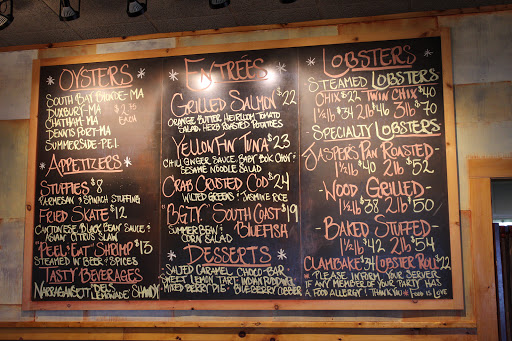 OYSTERS
SOUTH BAY BLONDE-MA
DUXBURY-MA
$2.75
CHATHAM-MA
EACH
DENNIS PORT-MA
SUMMERSIDE-P.E.I.
APPETIZERS
STUFFIES $8
PARMESAN & SPINACH STUFFING
FRIED SKATE $12
CANTONESE BLACK BEAN SAUCE &
ASIAN CITRUS SLAW
"PEEL & EAT" SHRIMP $13
STEAMED IN BEER & SPICES
TASTY BEVERAGES
NARRAGANSETT "DEL'S" LEMONADE SHANDY
ENTRÉES
GRILLED SALMON $22
ORANGE BUTTER HEIRLOOM TOMATO
SALAD HERB ROASTED POTATOES
YELLOWFIN TUNA $23
CHILI GINGER SAUCE, BABY BOK CHOY &
SESAME NOODLE SALAD
CRAB CRUSTED COD $24
WILTED GREENS & JASMINE RICE
SOUTH COAST $19
BLUEFISH
SUMMER BEAN &
CORN SALAD
DESSERTS
SALTED CARAMEL CHOCO-BAR
SWEET LEMON TART INDIAN PUDDING
MIXED BERRY PIE BLUEBERRY COBBLER
LOBSTERS
STEAMED LOBSTERS
CHIX $22 TWIN CHIX $40
1½lb $34 2lb $46 3lb $70
SPECIALTY LOBSTERS
JASPER'S PAN ROASTED-
1½lb $40 2lb $52
WOOD GRILLED-
1½lb $38 2lb $50
BAKED STUFFED
1½lb $42 2lb $54
CLAMBAKE $34 LOBSTER ROLL $22
* PLEASE INFORM YOUR SERVER
IF ANY MEMBER OF YOUR PARTY HAS
A FOOD ALLERGY! THANK YOU * FOOD IS LOVE